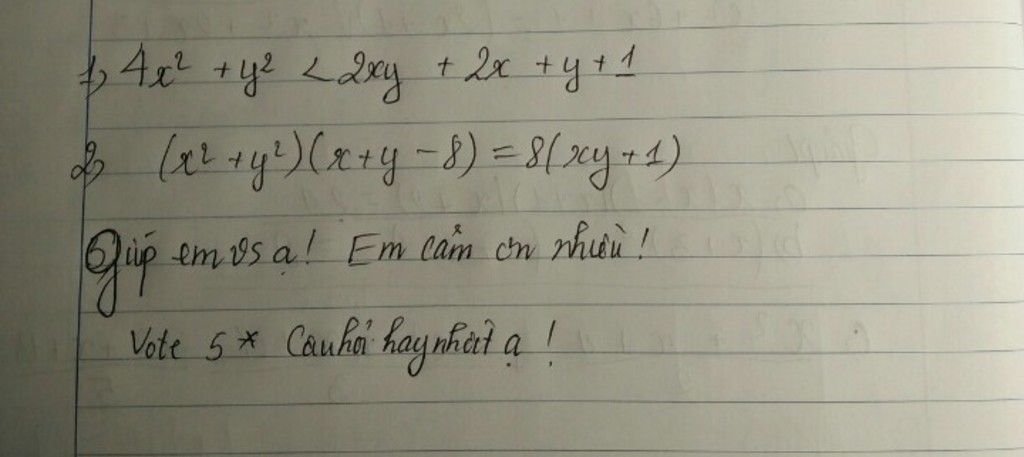 1, 4x² + y² < 2xy + 2x + y + 1
2, (x² + y²)(x + y - 8) = 8(xy + 1)
Giúp em vs ạ! Em cảm ơn nhiều!
Vote 5* Câu hỏi hay nhất ạ!